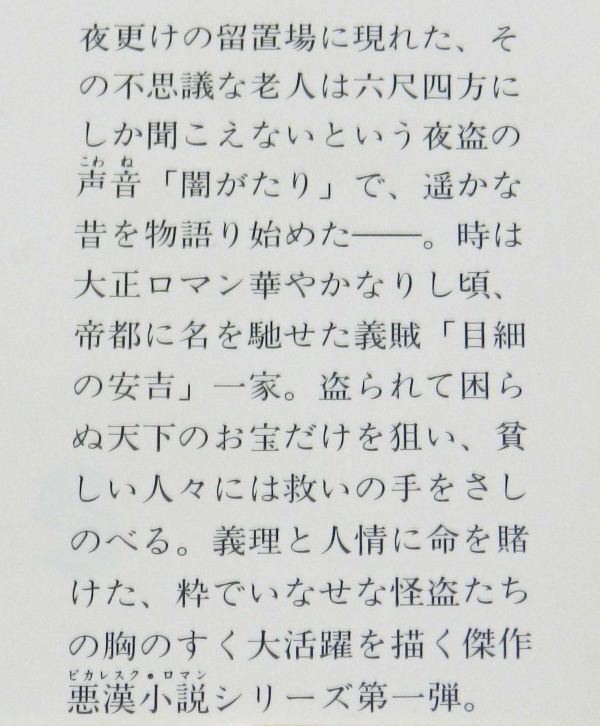 夜更けの留置場に現れた、そ
の不思議な老人は六尺四方に
しか聞こえないという夜盗の
こわ ね
声音「闇がたり」で、遥かな
昔を物語り始めた――。時は
大正ロマン華やかなりし頃、
帝都に名を馳せた義賊「目細
の安吉」一家。盗られて困ら
ぬ天下のお宝だけを狙い、貧
しい人々には救いの手をさし
のべる。義理と人情に命を賭
けた、粋でいなせな怪盗たち
の胸のすく大活躍を描く傑作
ピカレスク・ロマン
悪漢小説シリーズ第一弾。